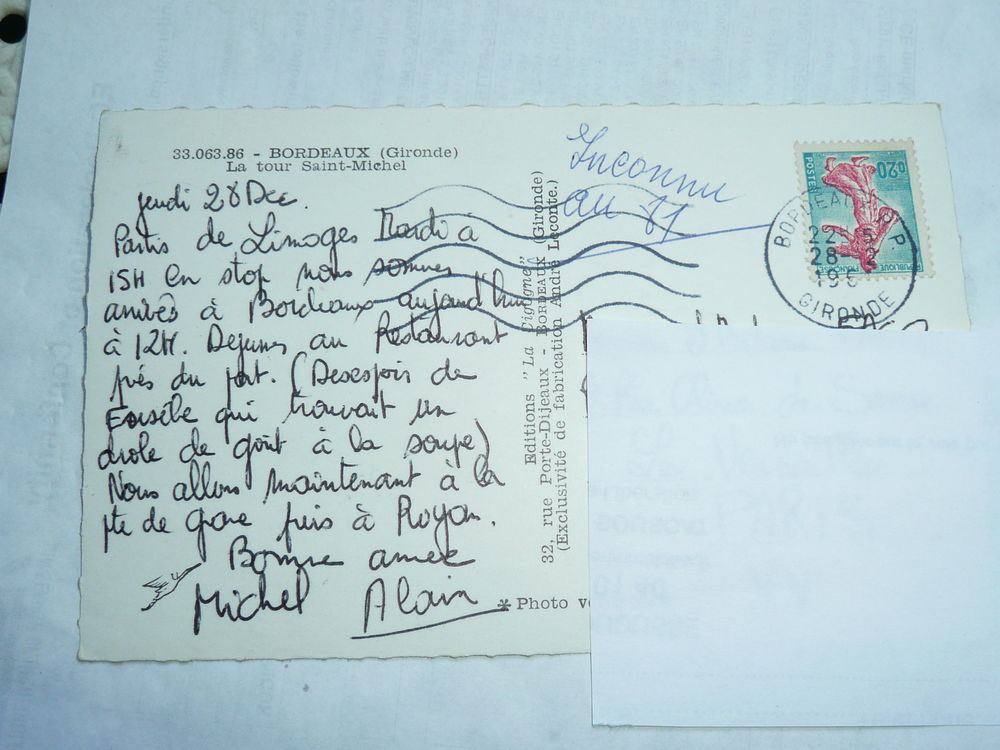 33.063.86 - BORDEAUX (Gironde)
La tour Saint-Michel
jeudi 28 Dec.
Partis de Limoges Mardi à
15H en stop nous sommes
arrivés à Bordeaux aujourd'hui
à 12H. Dejeuner au Restaurant
près du port. (Desespoir de
qui trouvait un
drole de goût à la soupe)
Nous allons maintenant à la
pte de grave puis à Royan.
Bonne année
Michel Alain
Editions "La Cigogne"
32, rue Porte-Dijeaux - BORDEAUX (Gironde)
(Exclusivité de fabrication André Leconte.)
Photo v
Inconnu
au 11
POSTES
0,20
REPUBLIQUE FRANÇAISE
BORDEAUX R.P.
28-12
196
GIRONDE